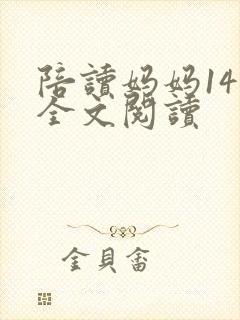 陪讀妈妈14
全文閱讀
金貝畲